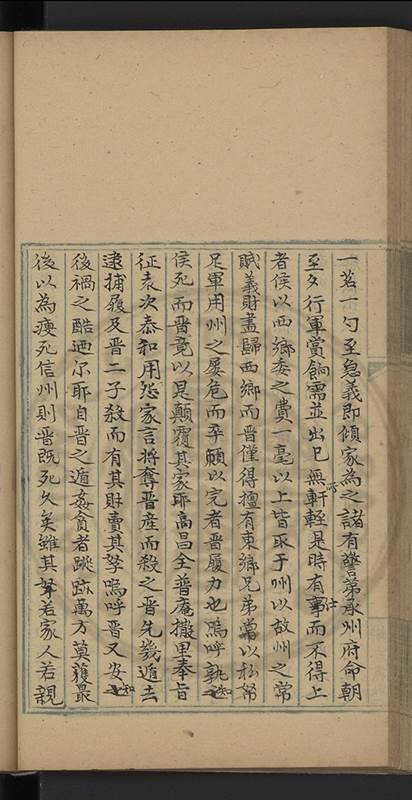 一茗一勺至急義即傾家為之諸有警弟承州府命朝
至夕行軍賞餉需並出已無軒輊是時有事而不得上
者侯以西鄉委之費一毫以上皆取于州以故州之常
賦義財盡歸西鄉而晋僅得擅有東鄉兄弟嘗以私帑
足軍用州之屢危而卒頼以完者晋履力也嗚呼孰知
侯死而晋竟以是顛覆其家耶高昌全普庵撒里奉旨
征袁次泰和用怨家言将奪晋産而殺之晋先幾遁去
逮捕履及晋二子殺而有其財賣其孥嗚呼晋又安知
後禍之酷迺尔耶自晋之遁姦貪者跳跡萬方莫獲最
後以為瘐死信州則晋既死久矣雖其孥若家人若親